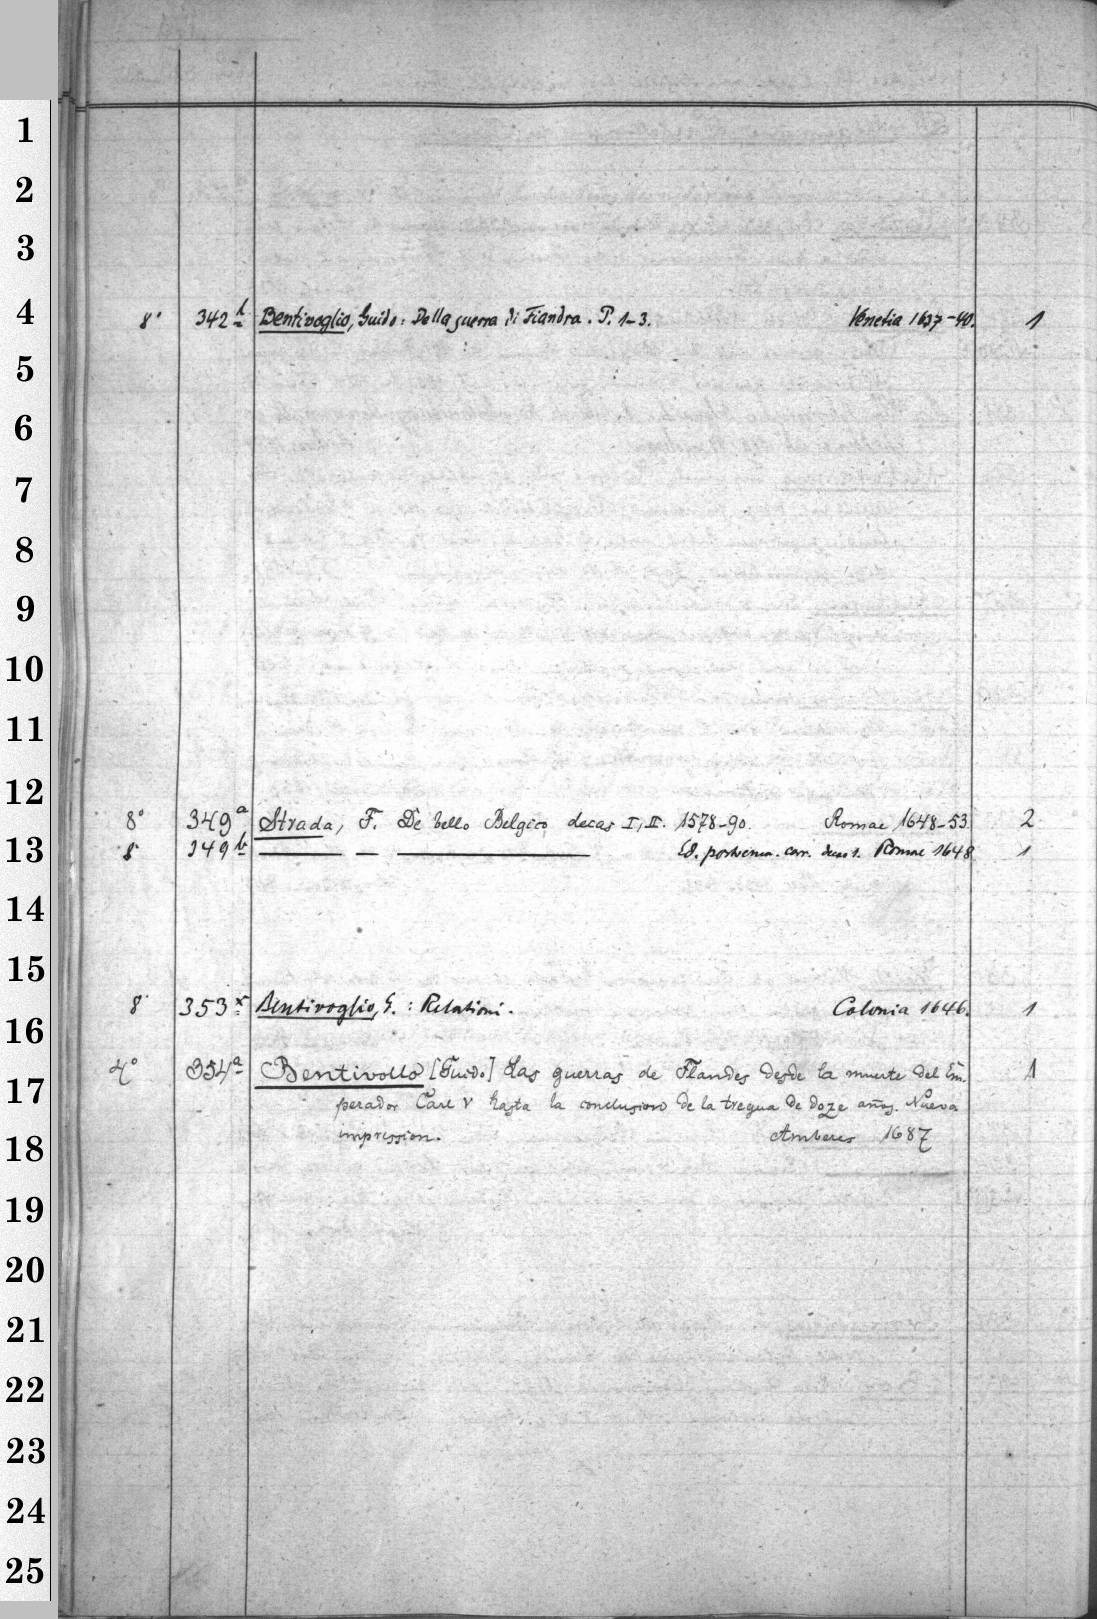 1
2
3
4
8° 342 b Bentivoglio, Guido: Della guerra di Fiandra. P. 1-3. Venetia 1637-40. 1
5
6
7
8
9
10
11
12
8° 349 a Strada, F. De bello Belgico decas I, II. 1578-90. Romae 1648-53 2
13
8° 349 b — — — Ed. corr. decas 1. Romae 1648 1
14
15
8° 353 x Bentivoglio, G.: Relationi. Colonia 1646. 1
16
4° 354 a Bentivollo [Guido] Las guerras de Flandes desde la muerte del Em-
17
perador Carl V hasta la conclusion de la tregua de doze años. Nueva
impression. Amberes 1687
1
18
19
20
21
22
23
24
25